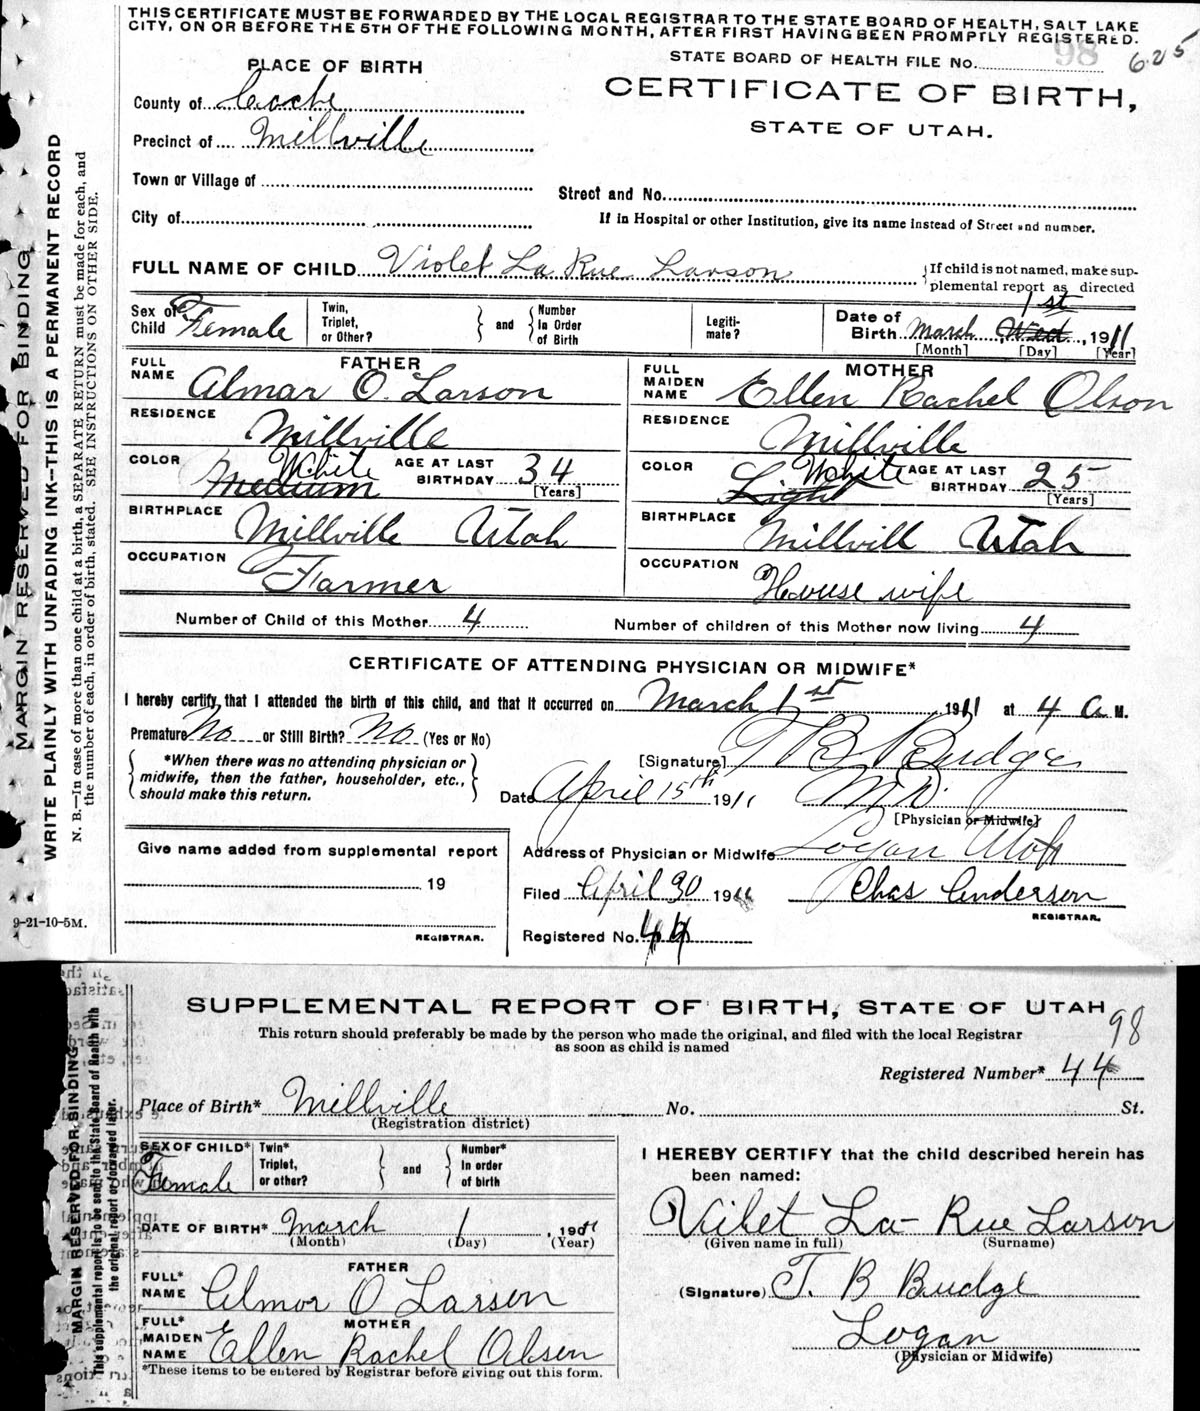 THIS CERTIFICATE MUST BE FORWARDED BY THE LOCAL REGISTRAR TO THE STATE BOARD OF HEALTH, SALT LAKE
CITY, ON OR BEFORE THE 5TH OF THE FOLLOWING MONTH, AFTER FIRST HAVING BEEN PROMPTLY REGISTERED.
STATE BOARD OF HEALTH FILE No. 98 625
PLACE OF BIRTH
CERTIFICATE OF BIRTH,
STATE OF UTAH.
County of Cache
Precinct of Millville
Town or Village of
Street and No.
City of
If in Hospital or other Institution, give its name instead of Street and number.
FULL NAME OF CHILD Violet La Rue Larson
If child is not named, make supplemental report as directed
Sex of Child Female
Twin, Triplet, or Other?
and
Number In Order of Birth
Legitimate?
Date of Birth March Wed 1st, 1911
[Month] [Day] [Year]
FATHER
FULL NAME Almar O. Larson
RESIDENCE Millville
COLOR Medium White AGE AT LAST BIRTHDAY 34 [Years]
BIRTHPLACE Millville Utah
OCCUPATION Farmer
MOTHER
FULL MAIDEN NAME Ellen Rachel Olson
RESIDENCE Millville
COLOR Light White AGE AT LAST BIRTHDAY 25 [Years]
BIRTHPLACE Millvill Utah
OCCUPATION House wife
Number of Child of this Mother 4 Number of children of this Mother now living 4
CERTIFICATE OF ATTENDING PHYSICIAN OR MIDWIFE*
I hereby certify, that I attended the birth of this child, and that it occurred on March 1st, 1911 at 4 a M.
Premature No or Still Birth? No (Yes or No)
*When there was no attending physician or
midwife, then the father, householder, etc.,
should make this return.
[Signature] T B Budge
M.D.
[Physician or Midwife]
Date April 15th 1911
Give name added from supplemental report
19
REGISTRAR.
Address of Physician or Midwife Logan Utah
Filed April 30 191
Chas Anderson
REGISTRAR.
Registered No. 44
9-21-10-5M.
MARGIN RESERVED FOR BINDING
WRITE PLAINLY WITH UNFADING INK—THIS IS A PERMANENT RECORD
N. B.—In case of more than one child at a birth, a SEPARATE RETURN must be made for each, and
the number of each, in order of birth, stated. SEE INSTRUCTIONS ON OTHER SIDE.
SUPPLEMENTAL REPORT OF BIRTH, STATE OF UTAH
98
This return should preferably be made by the person who made the original, and filed with the local Registrar
as soon as child is named
Registered Number* 44
Place of Birth* Millville No. St.
(Registration district)
SEX OF CHILD* Female
Twin* Triplet, or other?
and
Number* In order of birth
DATE OF BIRTH* March 1, 1911
(Month) (Day) (Year)
FATHER
FULL* NAME Almor O Larsen
MOTHER
FULL* MAIDEN NAME Ellen Rachel Olsen
*These items to be entered by Registrar before giving out this form.
I HEREBY CERTIFY that the child described herein has
been named:
Vilet La-Rue Larson
(Given name in full) (Surname)
(Signature) T. B Budge
Logan
(Physician or Midwife)
MARGIN RESERVED FOR BINDING
This supplemental report is to be sent to the State Board of Health with
the original report or forwarded later.